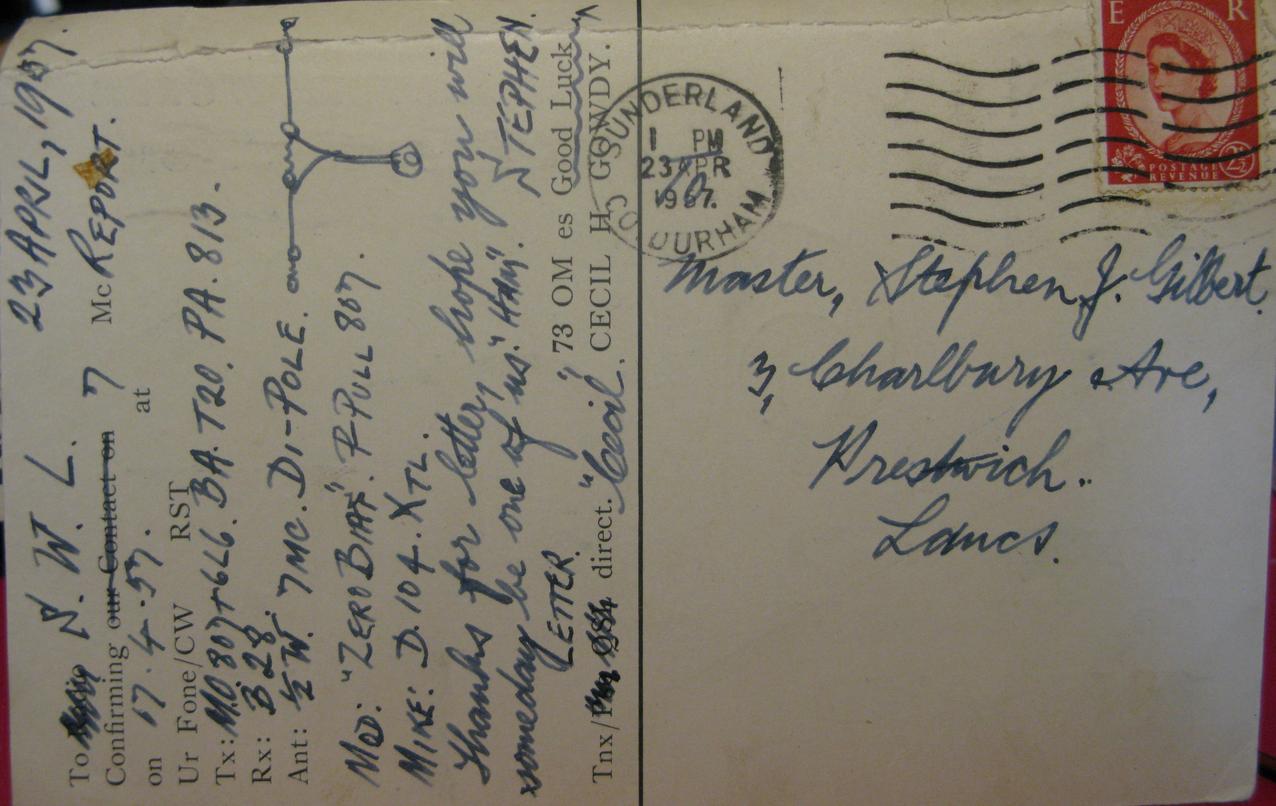 23 APRIL, 1957.
To S. W. L.
Confirming our Contact on 7 Mc REPORT.
on 17.4.57. at
Ur Fone/CW RST
Tx: M.O. 807 + 6L6. BA. T20. PA. 813.
Rx: B.28.
Ant: ½ W. 7 MC. DI-POLE.
MOD: "ZERO BIAS". P-PULL 807.
MIKE: D.104. XTL.
Thanks for letter, hope you will
someday be one of us. "HAM". STEPHEN.
LETTER 73 OM es Good Luck
Tnx/ direct. "Cecil", CECIL H. GOWDY.
SUNDERLAND
1 PM
23 APR
1957
CO DURHAM
E R
POSTAGE
REVENUE
2½
Master, Stephen J. Gilbert.
3, Charlbury Ave,
Prestwich.
Lancs.